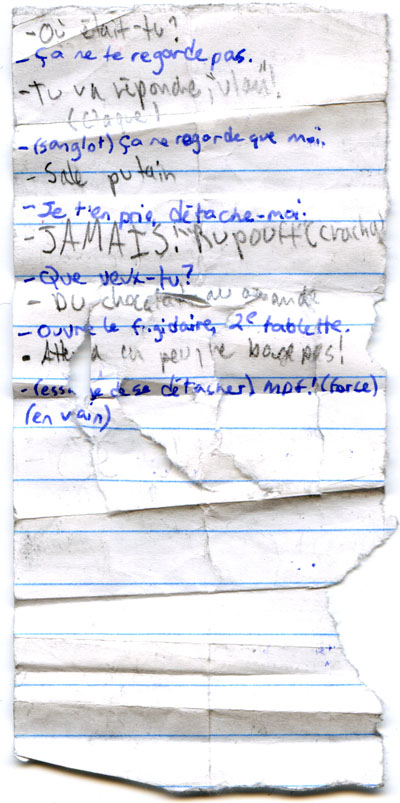 - Où était-tu?
- Ça ne te regarde pas.
- Tu va répondre, vlan!
(claque)
- (sanglot) Ça ne regarde que moi.
- Sale putain
- Je t'en prie, détache-moi.
- JAMAIS! (crache)
- Que veux-tu?
- Du chocolat au amande
- Ouvre le frigidaire, 2e tablette.
- un peu, bouge pas!
- (essaye de se détacher) MPF! (force)
(en vain)